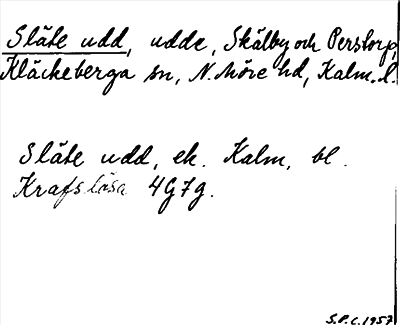 Släte udd, udde, Skälby och Perstorp,
Kläckeberga sn, N. Möre hd, Kalm. l.
Släte udd, ek. Kalm. bl.
Krafslösa 4G7g.
S.P.C. 1957